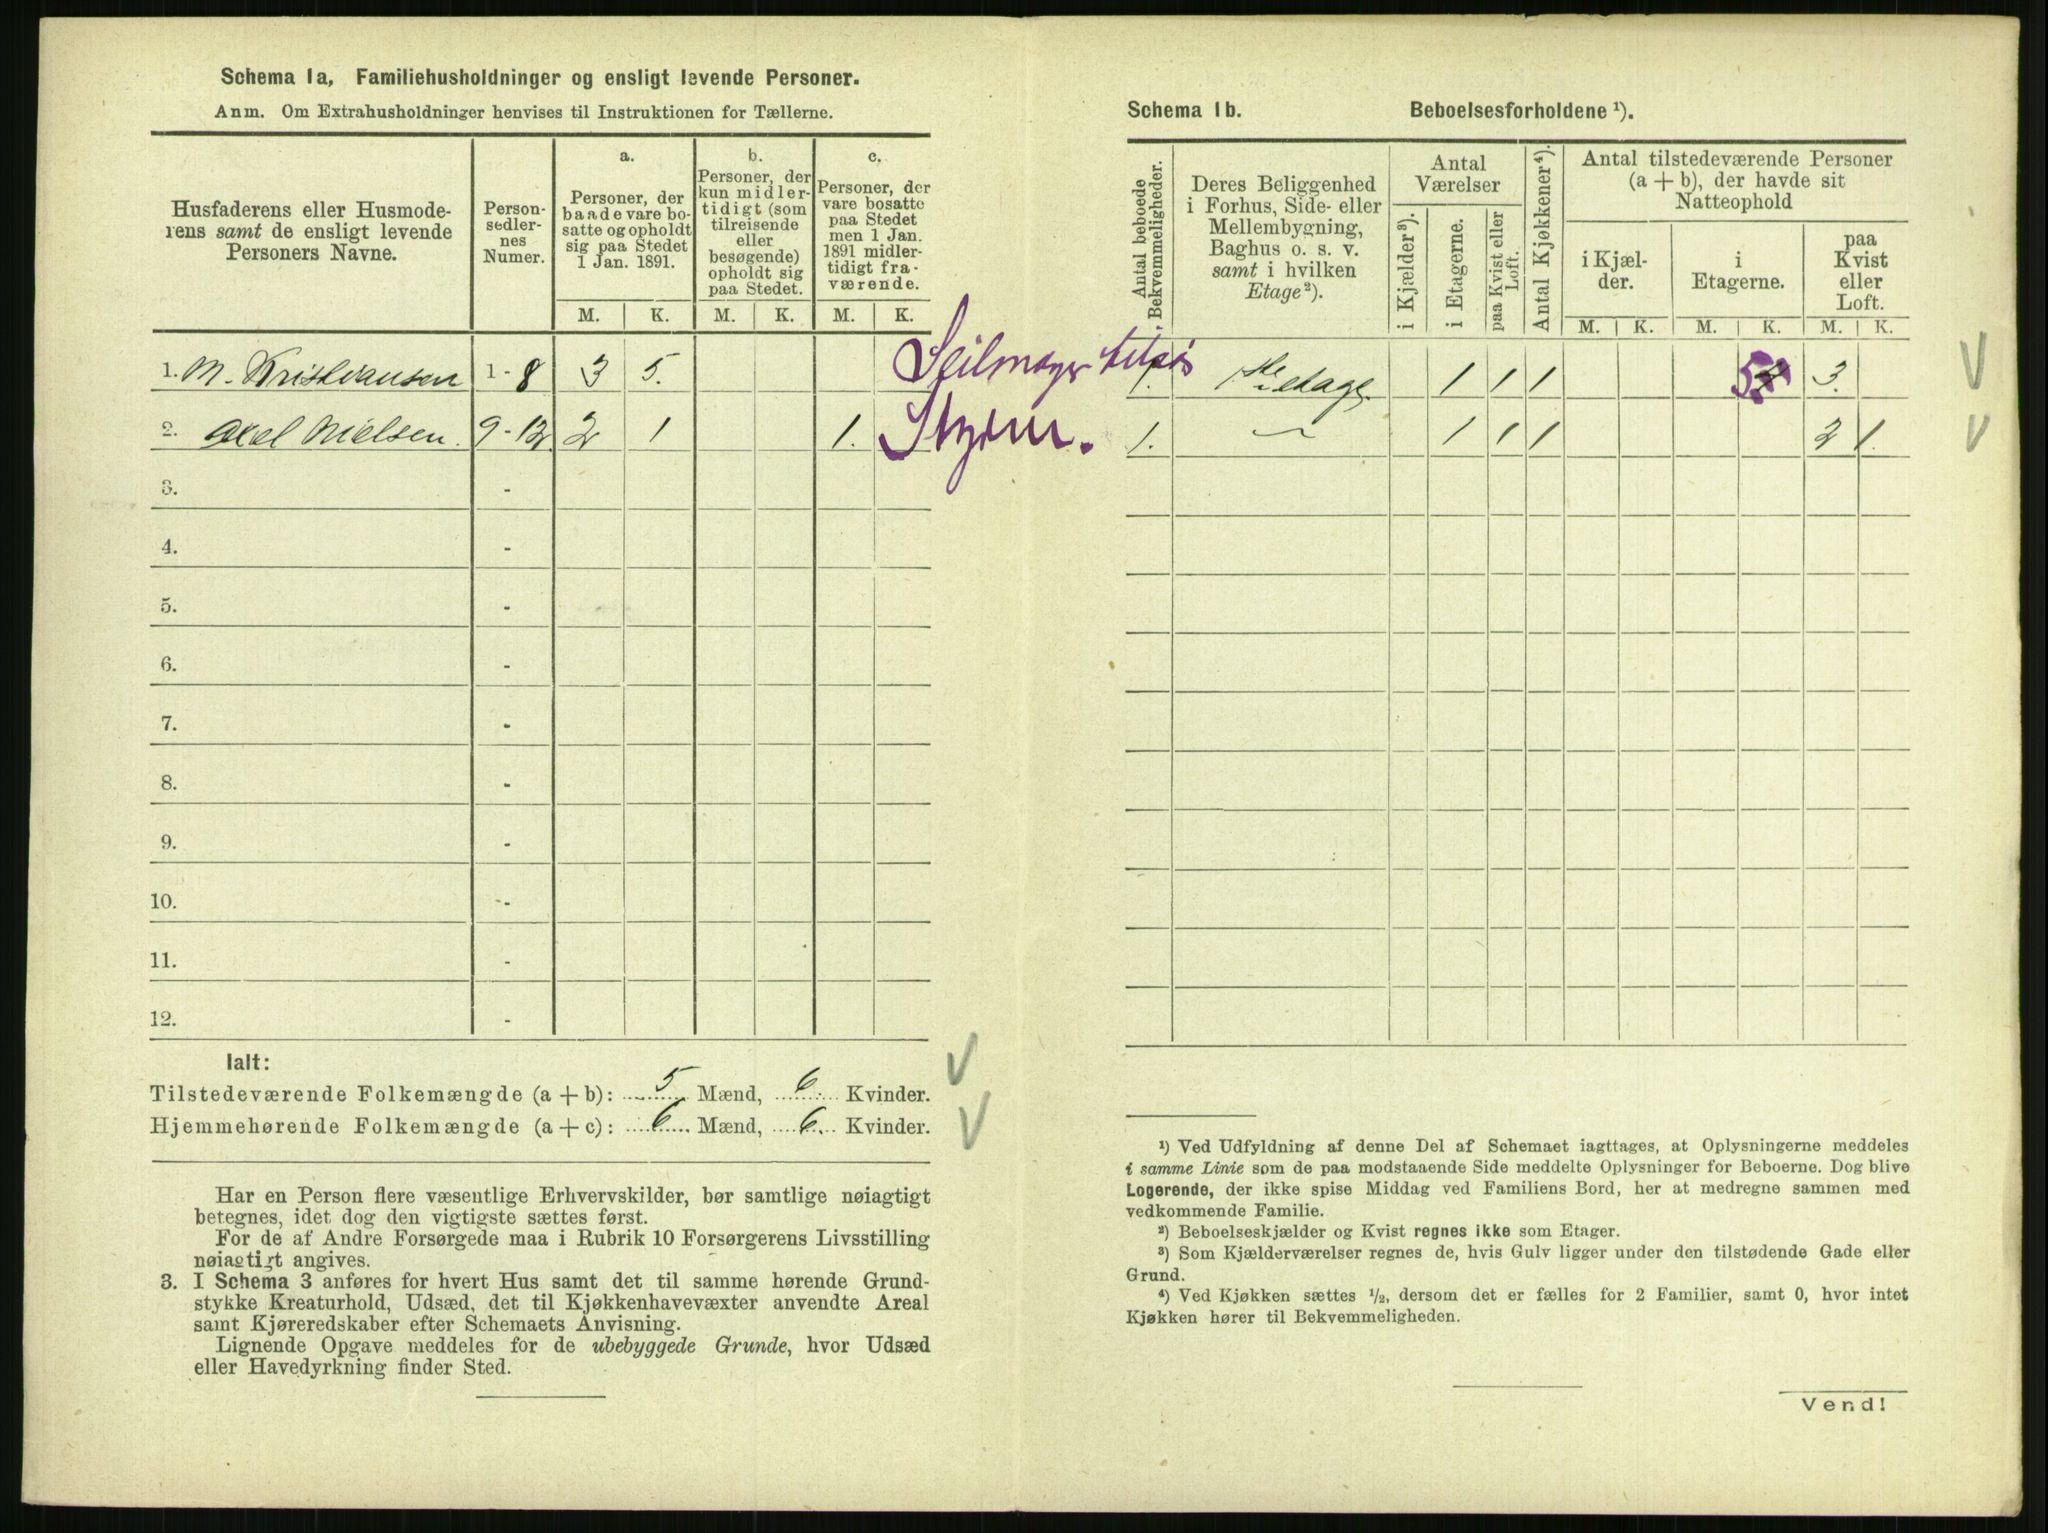 Schema 1a, Familiehusholdninger og ensligt levende Personer.
Anm. Om Extrahusholdninger henvises til Instruktionen for Tællerne.
Husfaderens eller Husmode-
rens samt de ensligt levende
Personers Navne.
Person-
sedler-
nes
Numer.
a.
Personer, der
baade vare bo-
satte og opholdt
sig paa Stedet
1 Jan. 1891.
b.
Personer, der
kun midler-
tidigt (som
tilreisende
eller
besøgende)
opholdt sig
paa Stedet.
c.
Personer, der
vare bosatte
paa Stedet
men 1 Jan.
1891 midler-
tidigt fra-
værende.
M. K. M. K. M. K.
1. M. Kristiansen 1 - 8 3 5. Seilmager
2. Axel Nielsen. 9 - 12 2 1 1. Styrm.
3. -
4. -
5. -
6. -
7. -
8. -
9. -
10. -
11. -
12. -
Ialt:
Tilstedeværende Folkemængde (a + b): 5 Mænd, 6 Kvinder.
Hjemmehørende Folkemængde (a + c): 6 Mænd, 6 Kvinder.
Har en Person flere væsentlige Erhvervskilder, bør samtlige nøiagtigt
betegnes, idet dog den vigtigste sættes først.
For de af Andre Forsørgede maa i Rubrik 10 Forsørgerens Livsstilling
nøiagtigt angives.
3. I Schema 3 anføres for hvert Hus samt det til samme hørende Grund-
stykke Kreaturhold, Udsæd, det til Kjøkkenhavevæxter anvendte Areal
samt Kjøreredskaber efter Schemaets Anvisning.
Lignende Opgave meddeles for de ubebyggede Grunde, hvor Udsæd
eller Havedyrkning finder Sted.
Schema 1b. Beboelsesforholdene ¹).
Antal beboede
Bekvemmeligheder.
Deres Beliggenhed
i Forhus, Side- eller
Mellembygning,
Baghus o. s. v.
samt i hvilken
Etage²).
Antal
Værelser
i Kjælder³).
i Etagerne.
paa Kvist eller
Loft.
Antal Kjøkkener⁴).
Antal tilstedeværende Personer
(a + b), der havde sit
Natteophold
i Kjæl-
der.
i
Etagerne.
paa
Kvist
eller
Loft.
M. K. M. K. M. K.
1. 1ste etage. 1 1 1 5 3.
1. 1 1 1 2 1.
¹) Ved Udfyldning af denne Del af Schemaet iagttages, at Oplysningerne meddeles
i samme Linie som de paa modstaaende Side meddelte Oplysninger for Beboerne. Dog blive
Logerende, der ikke spise Middag ved Familiens Bord, her at medregne sammen med
vedkommende Familie.
²) Beboelseskjælder og Kvist regnes ikke som Etager.
³) Som Kjælderværelser regnes de, hvis Gulv ligger under den tilstødende Gade eller
Grund.
⁴) Ved Kjøkken sættes ½, dersom det er fælles for 2 Familier, samt 0, hvor intet
Kjøkken hører til Bekvemmeligheden.
Vend!